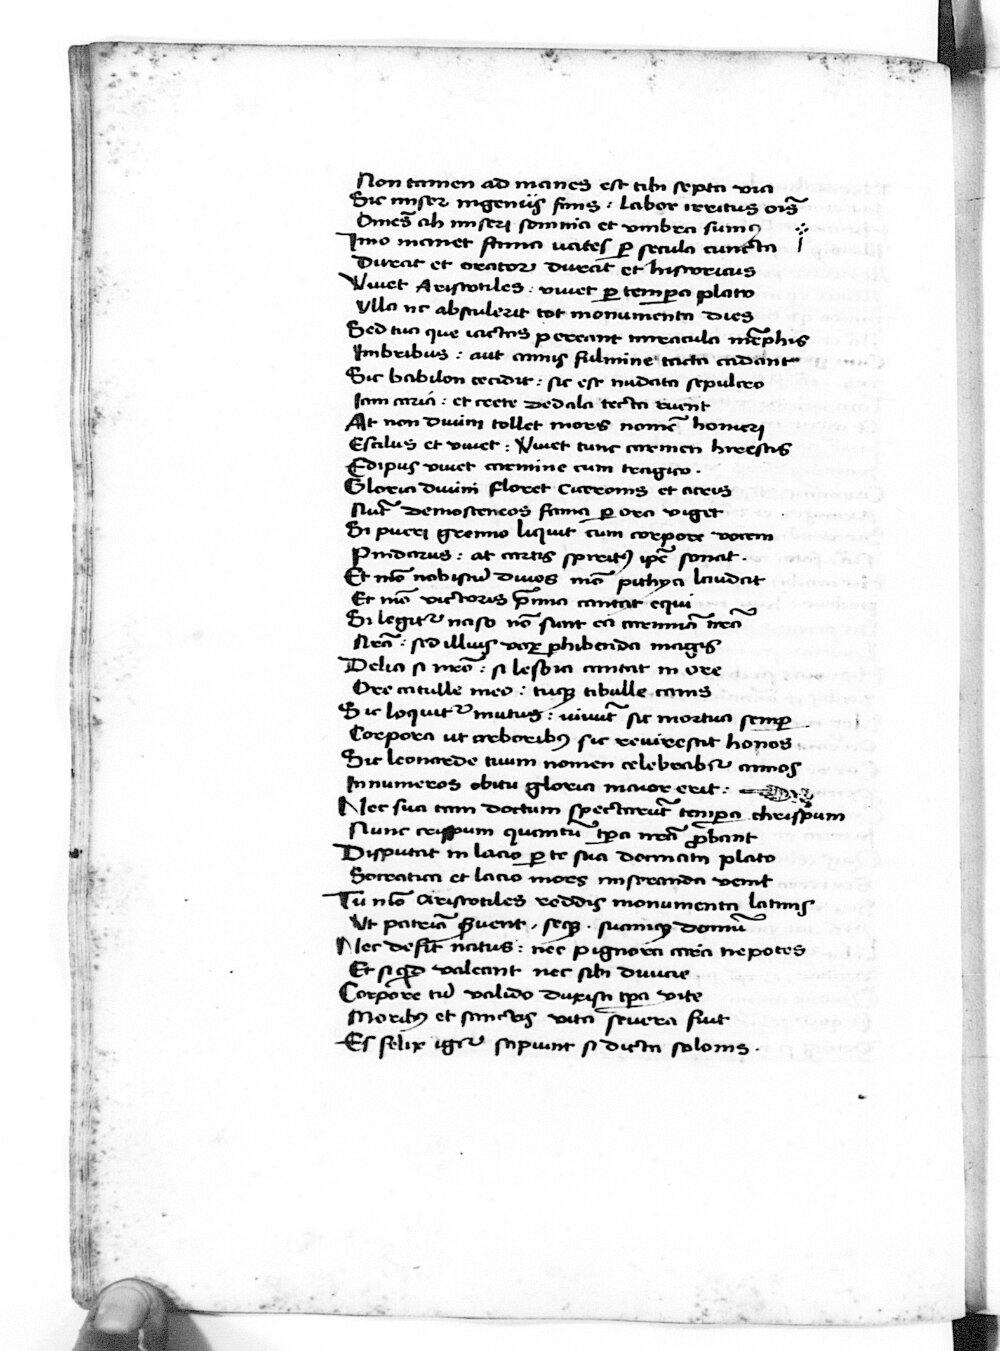 Non tamen ad manes est tibi septa via
Sic miser ingeniis finis : labor irritus oĩs
Omẽs ah miseri somnia et vmbra sumꝰ
Imo manet fama vates ꝑ secula cuncta
Durat et orator durat et historicus
Vivet Aristotiles : vivet ꝑ tempora plato
Vlla nc abstulerit tot monumenta dies
Sed tua que iactas pereant miracula mẽphis
Imbribus : aut annis fulmine tacta cadant
Sic babilon cecidit : sic est nudata sepulcro
Iam caria : et crete dedala tecta ruent
At non divini tollet mors nomẽ homeri
Escilus et vivet : Vivet tunc carmen hirestis
Edipus vivet carmine cum tragico .
Gloria divini floret Ciceronis et acris
Nũc demosteneos fama ꝑ ora viget
Si pueri gremio liquit cum corpore vocem
Pindarus : at cartis spiritꝰ ipẽ sonat .
Et mõ nobisciũ divos mõ pithya laudat
Et mõ victoris p̃mia cantat equi
Si legitᷣ naso nõ sunt ea carminã nr̃ã
Nrã : sed illius vox phibenda magis
Delia si mrõ : si lesbia cantat in ore
Ore catulle meo : tuqꝫ tibulle canis
Sic loquitᷣ mutus : vivũt sic mortua semꝑ
Corpora ut arboribꝰ sic revirescit honos
Sic leonarde tuum nomen celebrabᷣ annos
Innumeros obitu gloria maior erit :
Nec sua tam doctum spectarũt tempora chrispum
Nunc crispum quantũ tꝑa nrã ꝓbant
Disputat in lacio ꝑ te sua dogmata plato
Socratica et lacio mors miseranda venit
Tu mõ Aristotiles reddis monumenta latinis
Ut patriã iuvent , seqꝫ . suamqꝫ domũ
Nec defit natus : nec pignora cara nepotes
Et siqd valeant nec sibi divicie
Corpore tũ valido duxisti tꝑa vite
Moribꝰ et sanctis vita severa fuit
Es felix igᷣ sapiunt si dicta solonis .